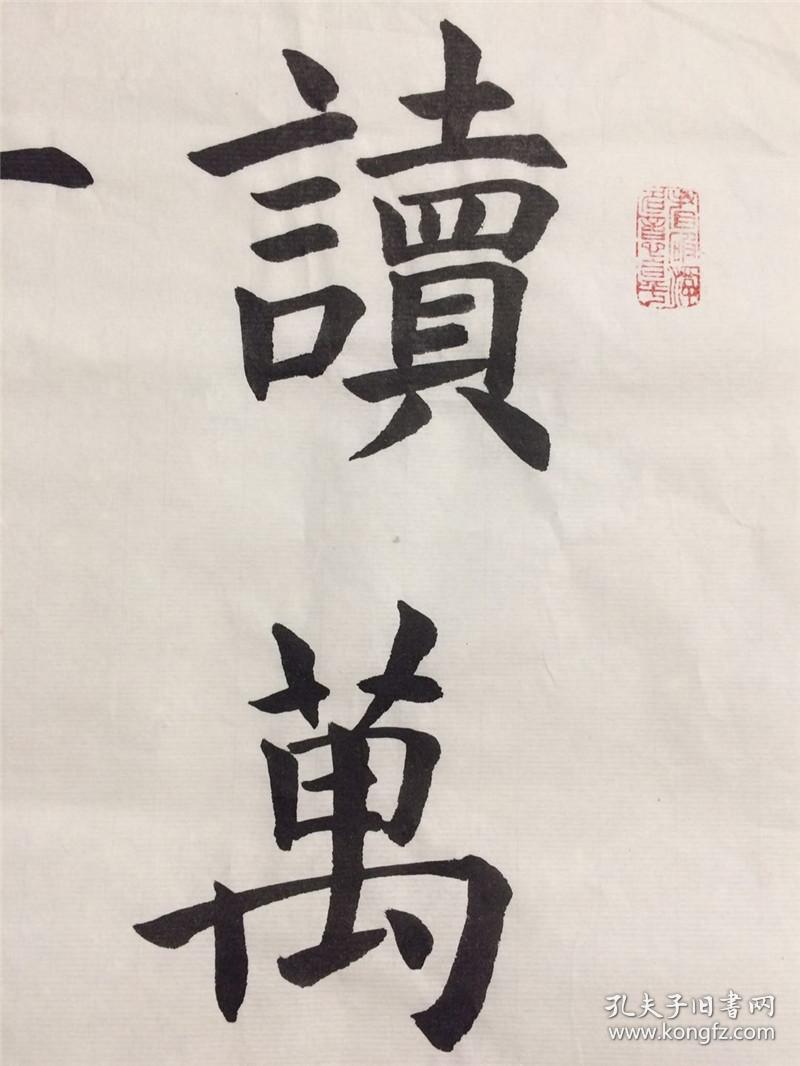 讀萬
孔夫子旧書网
www.kongfz.com